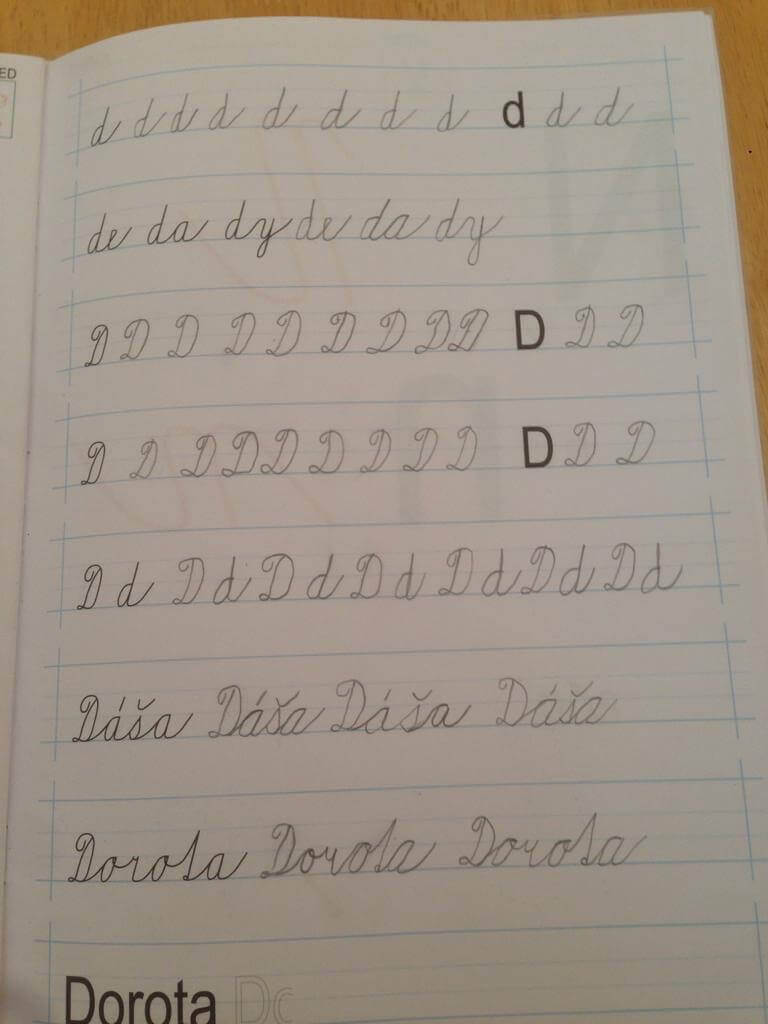 ED
d d d d d d d d d d d
de da dy de da dy
D D D D D D D D D D D D
D D D D D D D D D D D D
D d D d D d D d D d D d D d
Dáša Dáša Dáša Dáša
Dorota Dorota Dorota
Dorota Do